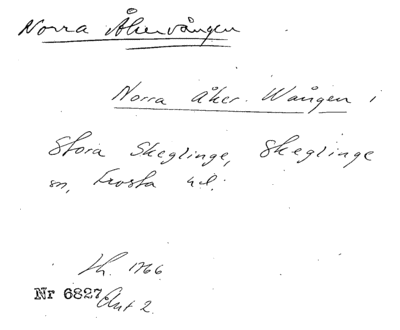 Norra Åkervången
Norra åker. Wången i
Stora Skeglinge, Skeglinge
sn, Frosta hd.
Lh. 1766
Nr 6827 Akt 2.